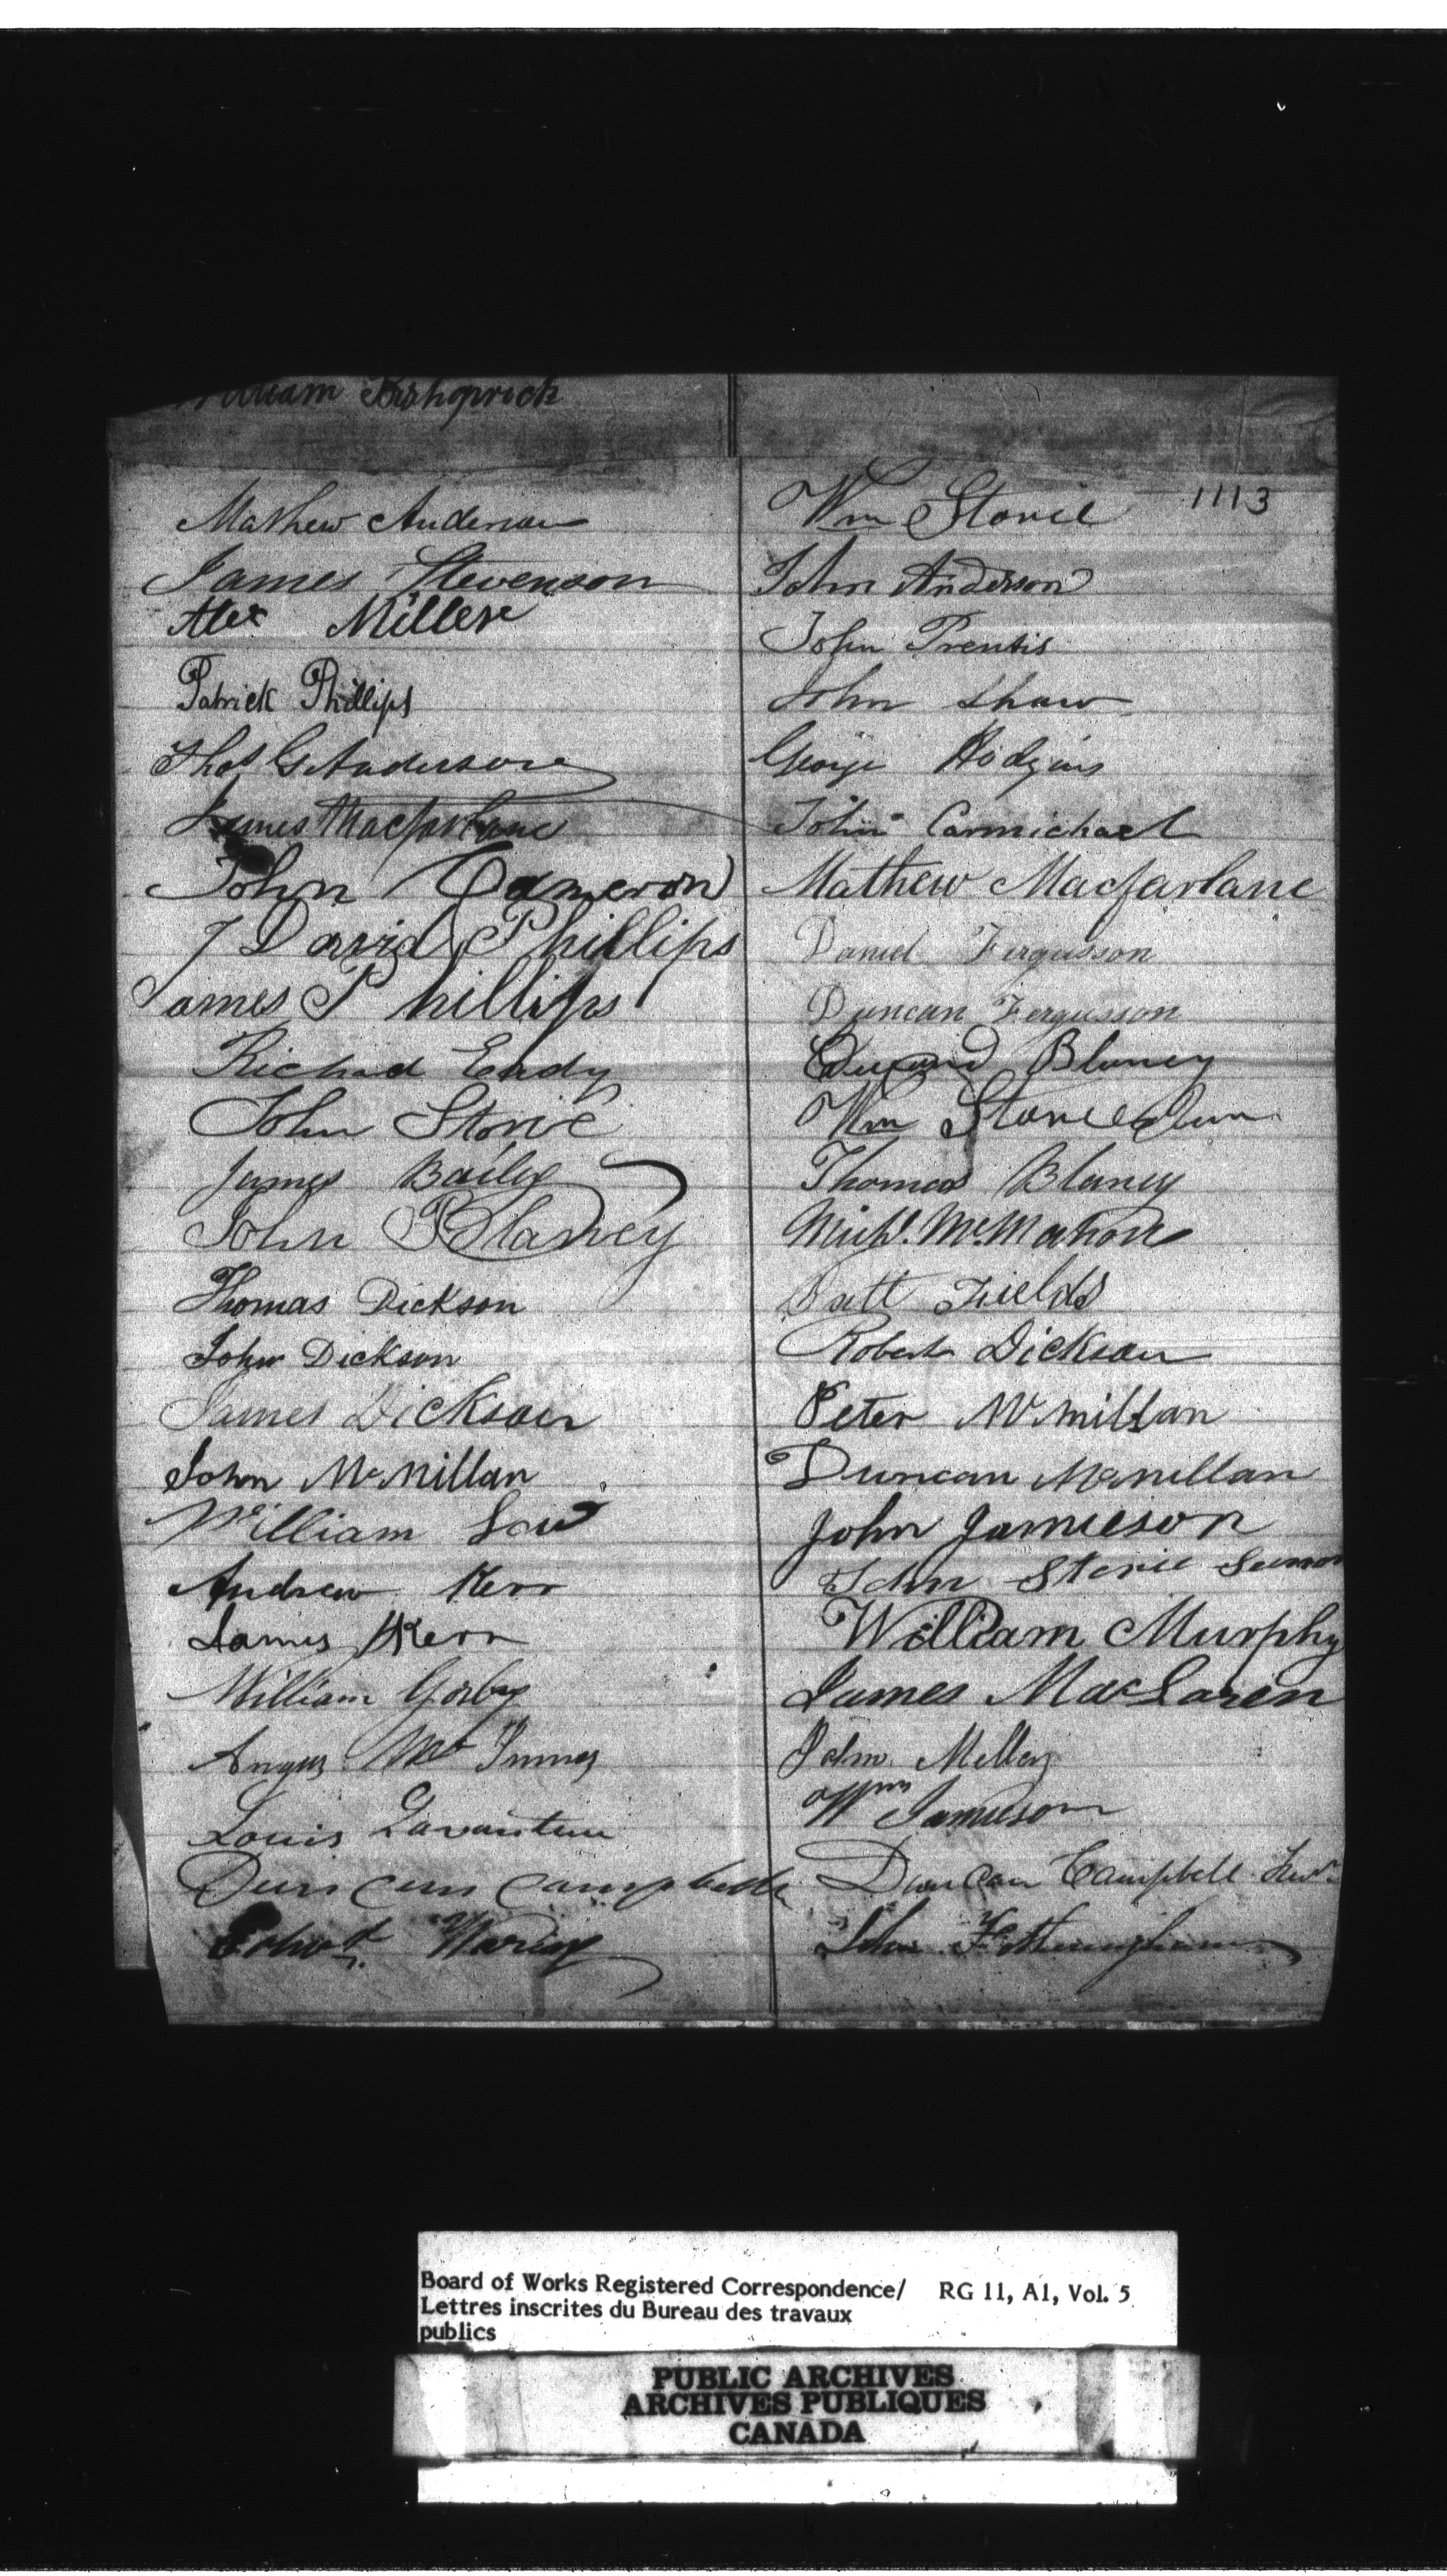 William Bishoprick
1113
Mathew Anderson
James Stevenson
Alex Miller
Patrick Phillips
Thos G Anderson
James Macfarlane
John Cameron
David Phillips
James Phillips
Richad Eady
John Storie
James Bailey
John Blaney
Thomas Dickson
John Dickson
James Dickson
John McMillan
William Law
Andrew Kerr
James Kerr
William Gorby
Angus Mc Innes
Louis
Duncan Campbell
Edwd. Waring
Wm Storie
John Anderson
John Prentis
John Shaw
George Hodgins
John Carmichael
Mathew Macfarlane
Daniel Fergusson
Duncan Fergusson
Edward Blaney
Wm Storie Jun
Thomas Blaney
Michl. McMahon
Patt Fields
Robert Dickson
Peter McMillan
Duncan McMillan
John Jamieson
John Storie Senior
William Murphy
James MacLaren
John
Wm Jamieson
Duncan Campbell
John Fotheringham
Board of Works Registered Correspondence/ RG 11, A1, Vol. 5
Lettres inscrites du Bureau des travaux
publics
PUBLIC ARCHIVES
ARCHIVES PUBLIQUES
CANADA